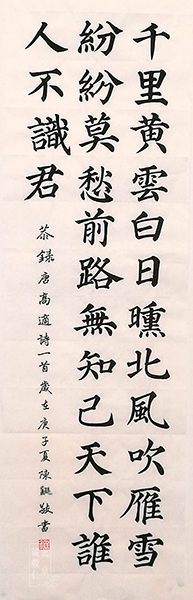 千里黄雲白日曛北風吹雁雪
紛紛莫愁前路無知己天下誰
人不識君
恭録唐高適詩一首歲在庚子夏陳敬書